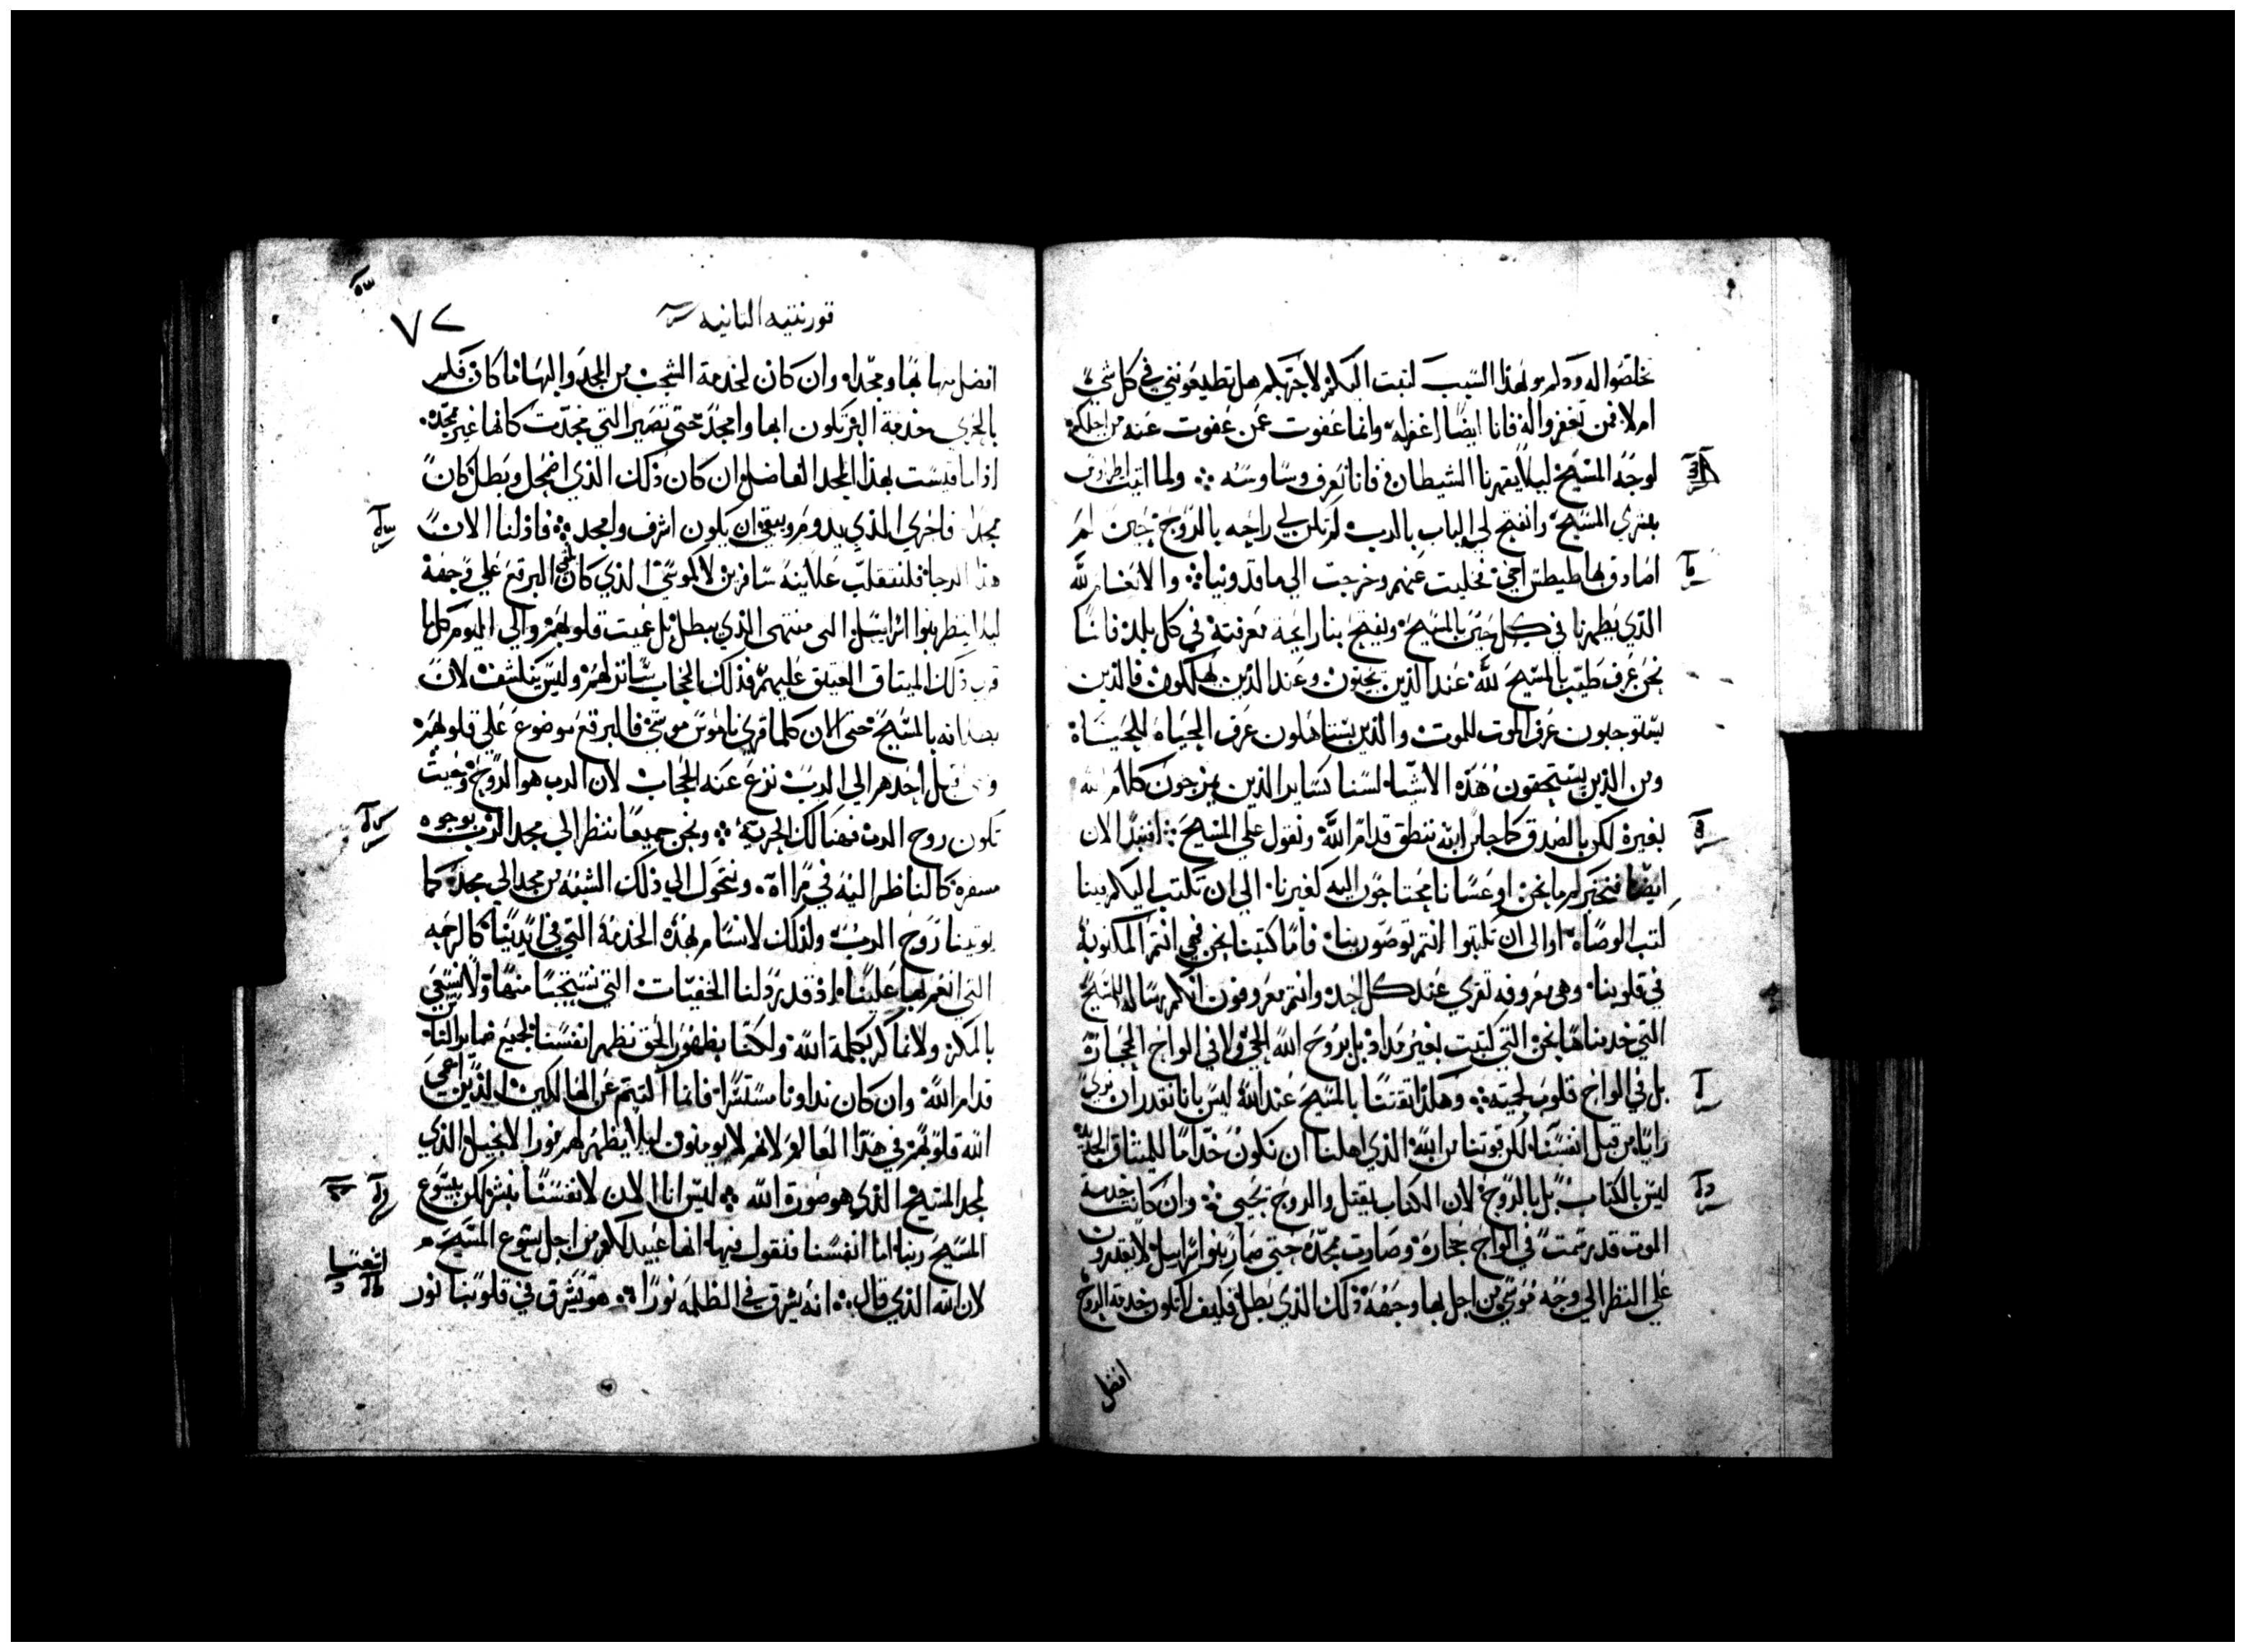 تخلصوا له ودكم ولهذا السبب كتبت اليكم لاجربكم هل تطيعونني في كل شي
ام لا فمن تغفروا له فانا ايضا اغفر له وانما عفوت عمن عفوت عنه من اجلكم
لوجه المسيح ليلا يقهرنا الشيطان فانا نعرف وساوسه ولما اتيت اطراوس
ببشري المسيح وانفتح لي الباب بالرب لم تكن لي راحه بالروح حين لم
اصادف بها طيطس اخي فخليت عنهم وخرجت الي ماقدونيا والانعام لله
الذي يظهرنا في كل حين بالمسيح ويفيح بنا رايحة معرفته في كل بلد فاننا
نحن عرف طيب بالمسيح لله عند الذين يحيون وعند الذين يهلكون فالذين
يستوجبون عرف الموت للموت والذين يستاهلون عرف الحياه للحياه
ومن الذين يستحقون هذه الاشيا لسنا كساير الذين يمزجون كلام الله
بغيره لكن بالصدق كما جا من الله ننطق قدام الله ونقول علي المسيح افنبدا الان
ايضا فنخبركم ما نحن او عسانا محتاجون اليه كغيرنا الي ان تكتب اليكم بينا
كتب الوصاه او الي ان تكتبوا انتم توصون بنا فاما كتبنا نحن فهي انتم المكتوبه
في قلوبنا وهي معروفه تقري عند كل احد وانتم معروفون انكم رساله المسيح
التي خدمناها نحن التي كتبت بغير مداد بل بروح الله الحي لا في الواح الحجاره
بل في الواح قلوب لحميه وهكذا ثقتنا بالمسيح عند الله ليس بانا نقدر ان نري
رايا من قبل انفسنا لكن قوتنا من الله الذي اهلنا ان نكون خداما للميثاق الجديد
ليس بالكتاب بل بالروح لان الكتاب يقتل والروح تحيي وان كانت خدمة
الموت قد رسمت في الواح حجاره وصارت ممجده حتي صار بنوا اسراييل لا يقدرون
علي النظر الي وجه موسي من اجل بها وجهه ذلك الذي بطل فكيف لا تكون خدمة الروح
افضل
قورنتيه الثانيه
٧٢
افضل بهاها ومجدا وان كان لخدمة الشجب من المجد والبها ما كان فكم
بالحري خدمة البر تكون ابها وامجد حتي تصير التي مجدت كانها غير ممجده
اذا ما قيست بهذا المجد الفاضل وان كان ذلك الذي اضمحل وبطل كان
مجدا فاحري الذي يدوم ويبقي ان يكون اشرف وامجد فاذ لنا الان
هذا الرجا فلنتقلب علانيه سافرين لا كموسي الذي كان البرقع علي وجهه
ليلا ينظر بنوا اسراييل الي منتهي الذي يبطل بل عميت قلوبهم والي اليوم كلما
قري ذلك الميثاق العتيق عليهم فذلك الحجاب ساتر لهم وليس يكشف لان
بطلانه بالمسيح حتي الان كلما قري ناموس موسي فالبرقع موضوع علي قلوبهم
ومن قبل احدهم الي الرب نزع عنه الحجاب لان الرب هو الروح وحيث
تكون روح الرب فهنالك الحريه ونحن جميعا ننظر الي مجد الرب بوجوه
مسفره كالناظر اليه في مراه ونتحول الي ذلك الشبه من مجد الي مجد كما
يوتينا روح الرب ولذلك لا نسام بهذه الخدمة التي في ايدينا كالرحمه
التي انعم بها علينا اذ قد نرذل الخفيات التي نستحيا منها ولا نسعي
بالمكر ولا نماكر بكلمة الله ولكنا بظهور الحق نظهر انفسنا لجميع ضماير الناس
قدام الله وان كان نداونا مستترا فانما اكتتم عن الهالكين الذين اعمي
الله قلوبهم في هذا العالم لانهم لا يومنون ليلا يظهر لهم نور الانجيل الذي
لمجد المسيح الذي هو صورة الله ليس انا الان لانفسنا نبشر لكن بيسوع
المسيح ربنا اما انفسنا فنقول فيها انها عبيد لكم من اجل يسوع المسيح
لان الله الذي قال انه يشرق في الظلمه نورا هو يشرق في قلوبنا نور